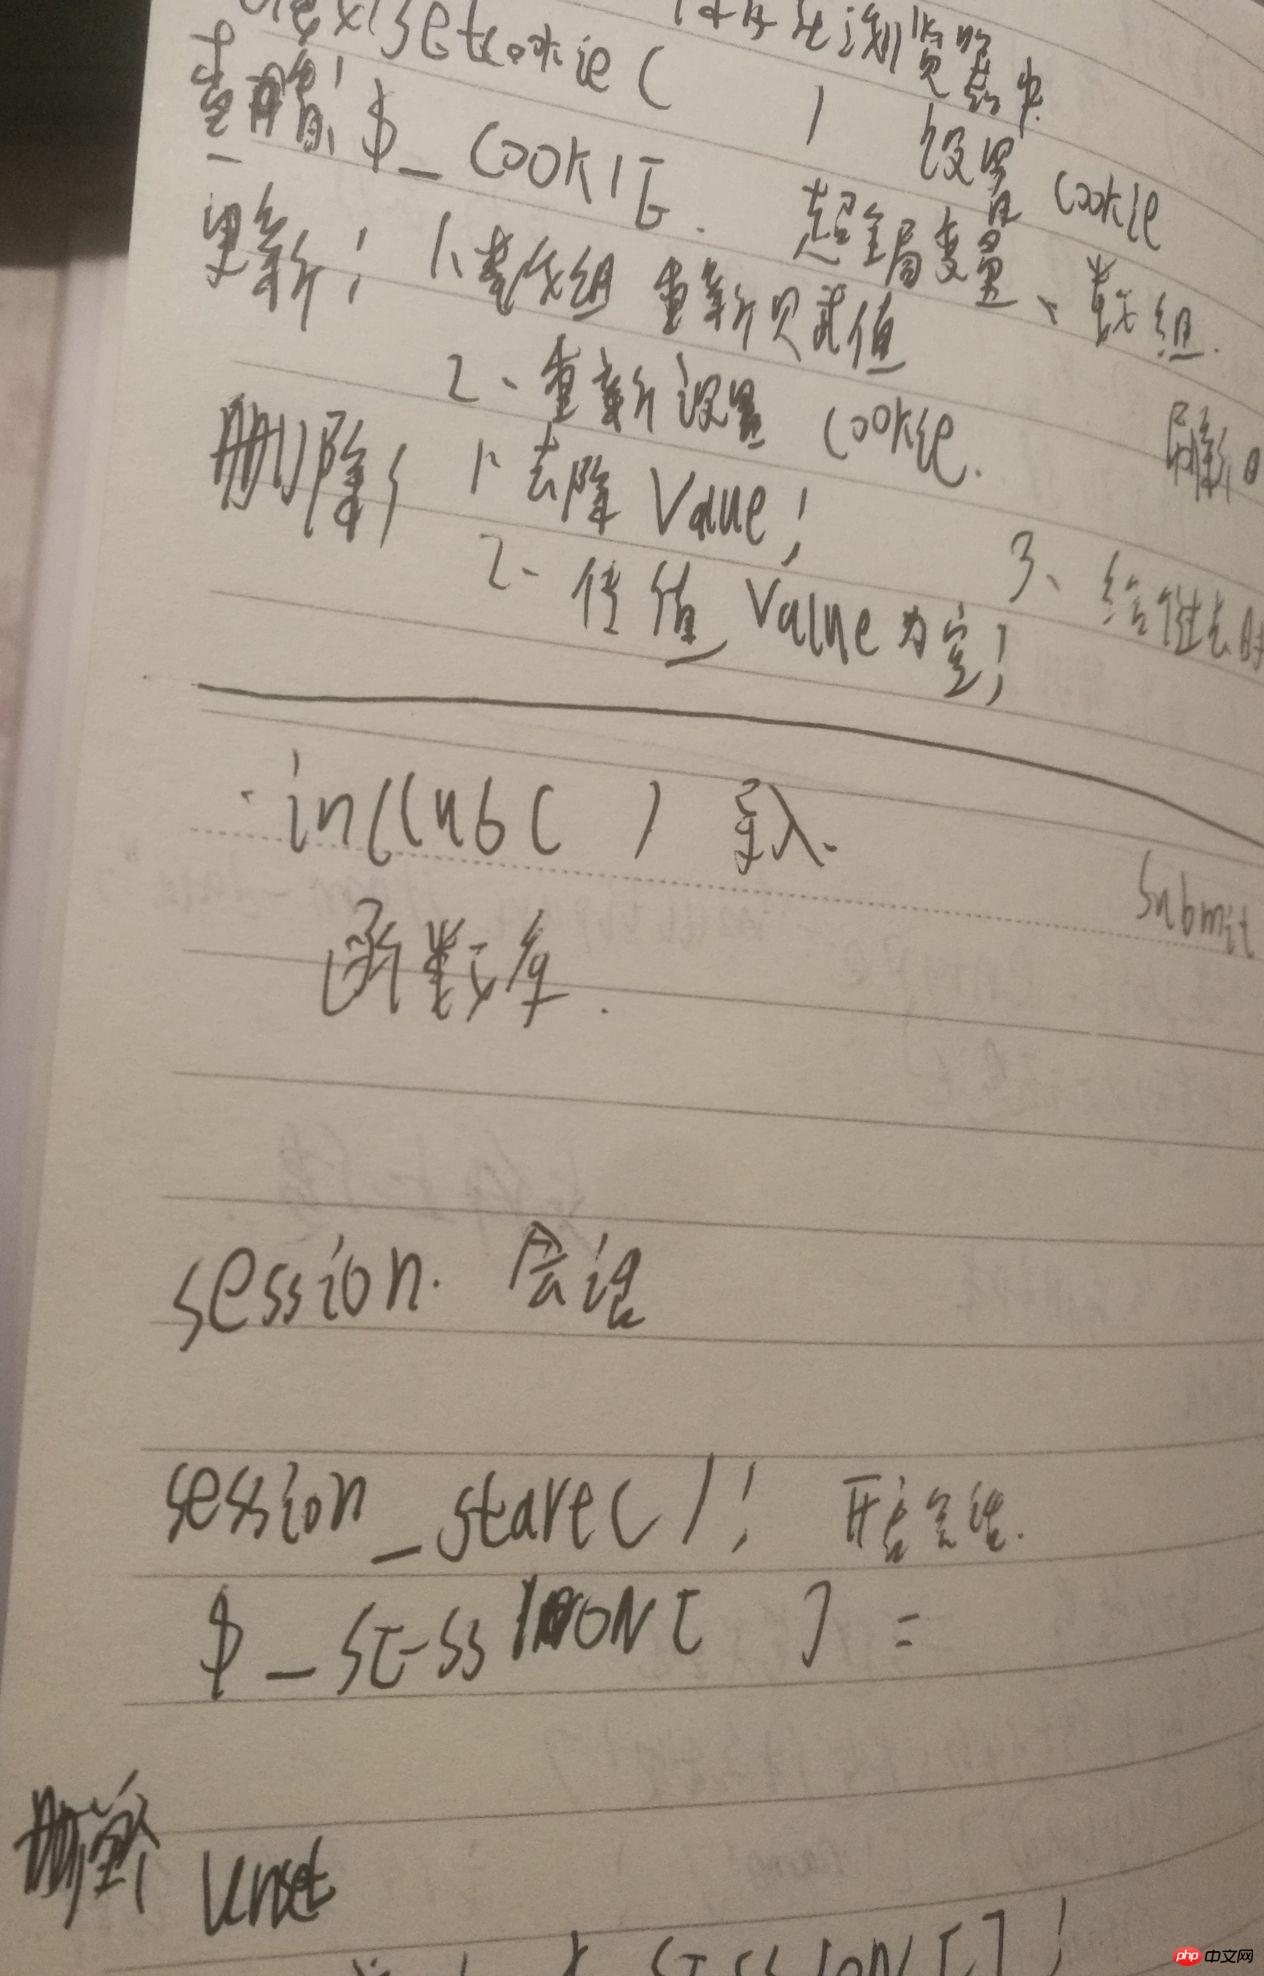 setcookie( ) 设置 cookie
查看: $_COOKIE. 超全局变量、数组.
更新: 1、数组 重新赋值
2、重新设置 cookie. 刷新
删除: 1、去除 Value;
2、传值 Value为空; 3、给
· includ( ) 导入.
Submit
函数库.
session. 会话
session_start( ); 开启会话.
$_SESSION[ ] =
删除
Unset
$_SESSION[ ];
php 中文网